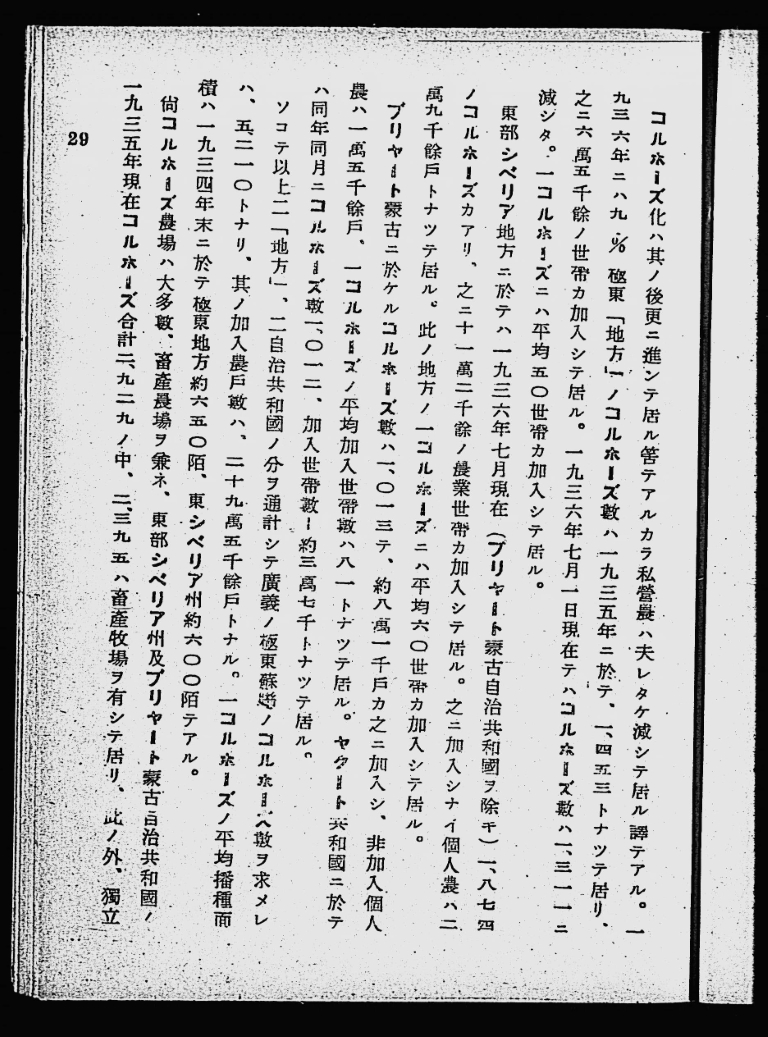 コルホーズ化ハ其ノ後更ニ進ンテ居ル筈テアルカラ私營農ハ夫レタケ減シテ居ル譯テアル。一
九三六年ニハ九・% 極東「地方」ノコルホーズ數ハ一九三五年ニ於テ、一、四五三トナツテ居リ、
之ニ六萬五千餘ノ世帶カ加入シテ居ル。一九三六年七月一日現在テハコルホーズ數ハ一、三一一ニ
減シタ。一コルホーズニハ平均五〇世帶カ加入シテ居ル。
東部シベリア地方ニ於テハ一九三六年七月現在（ブリヤート蒙古自治共和國ヲ除キ）一、八七四
ノコルホーズカアリ、之ニ十一萬二千餘ノ農業世帶カ加入シテ居ル。之ニ加入シナイ個人農ハ二
萬九千餘戶トナツテ居ル。此ノ地方ノ一コルホーズニハ平均六〇世帶カ加入シテ居ル。
ブリヤート蒙古ニ於ケルコルホーズ數ハ一、〇一三テ、約八萬一千戶カ之ニ加入シ、非加入個人
農ハ一萬五千餘戶、一コルホーズノ平均加入世帶數ハ八一トナツテ居ル。ヤクート共和國ニ於テ
ハ同年同月ニコルホーズ數一、〇一二、加入世帶數ー約三萬七千トナツテ居ル。
ソコテ以上二「地方」、二自治共和國ノ分ヲ通計シテ廣義ノ極東蘇聯ノコルホーズ數ヲ求メレ
ハ、五二一〇トナリ、其ノ加入農戶數ハ、二十九萬五千餘戶トナル。一コルホーズノ平均播種面
積ハ一九三四年末ニ於テ極東地方約六五〇陌、東シベリア州約六〇〇陌テアル。
尙コルホーズ農場ハ大多數、畜產農場ヲ兼ネ、東部シベリア州及ブリヤート蒙古自治共和國ノ
一九三五年現在コルホーズ合計二、九二九ノ中、二、三九五ハ畜產牧場ヲ有シテ居リ、此ノ外、獨立
29